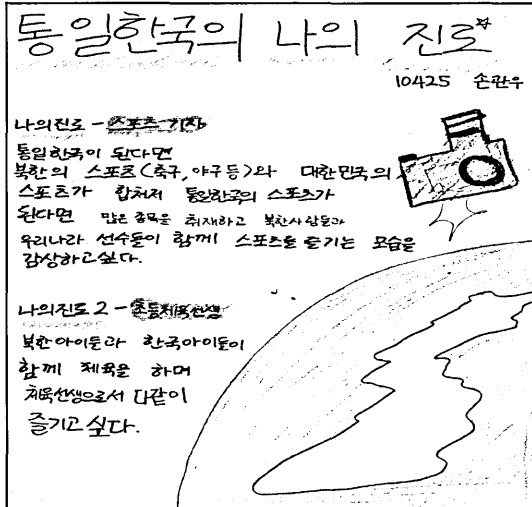 통일한국의 나의 진로
10425 손관우
나의진로 - 스포츠 기자
통일한국이 된다면
북한의 스포츠(축구, 야구 등)와 대한민국의
스포츠가 합쳐져 통일한국의 스포츠가
된다면 많은 종목을 취재하고 북한사람들과
우리나라 선수들이 함께 스포츠를 즐기는 모습을
감상하고싶다.
나의진로 2 - 초등체육선생
북한아이들과 한국아이들이
함께 체육을 하며
체육선생으로서 다같이
즐기고 싶다.